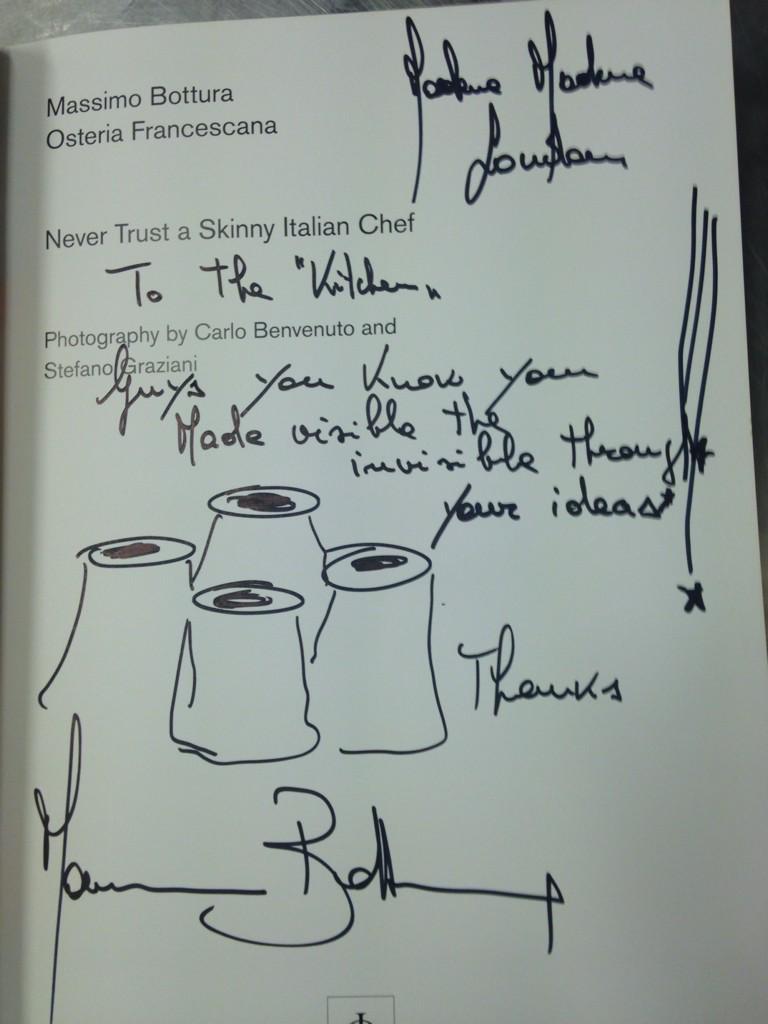 Massimo Bottura
Osteria Francescana
London
Never Trust a Skinny Italian Chef
To the "Kitchen"
Photography by Carlo Benvenuto and
Stefano Graziani
Guys you know you
Made visible the
invisible through
your ideas*
Thanks